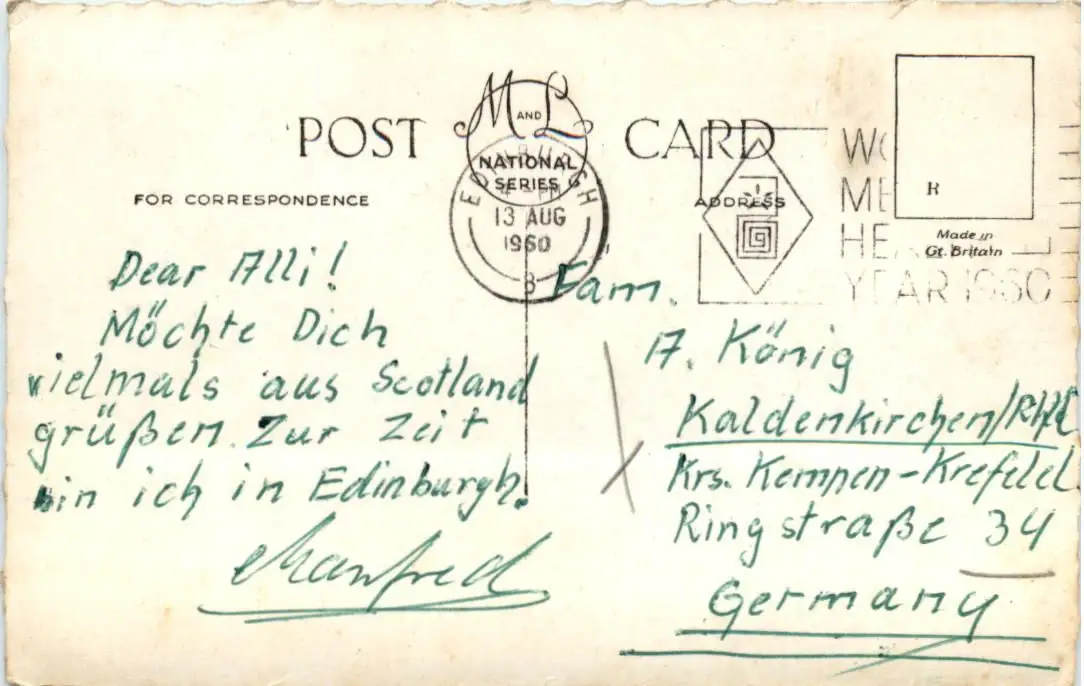 POST CARD
M AND L
NATIONAL
SERIES
FOR CORRESPONDENCE
ADDRESS
EDINBURGH
4 - PM
13 AUG
1960
B
YEAR 1960
R
Made in
Gt. Britain
Dear Alli!
Möchte Dich
vielmals aus Scotland
grüßen. Zur Zeit
bin ich in Edinburgh.
Manfred
Fam.
A. König
Kaldenkirchen/Rhld
Krs. Kempen-Krefeld
Ringstraße 34
Germany